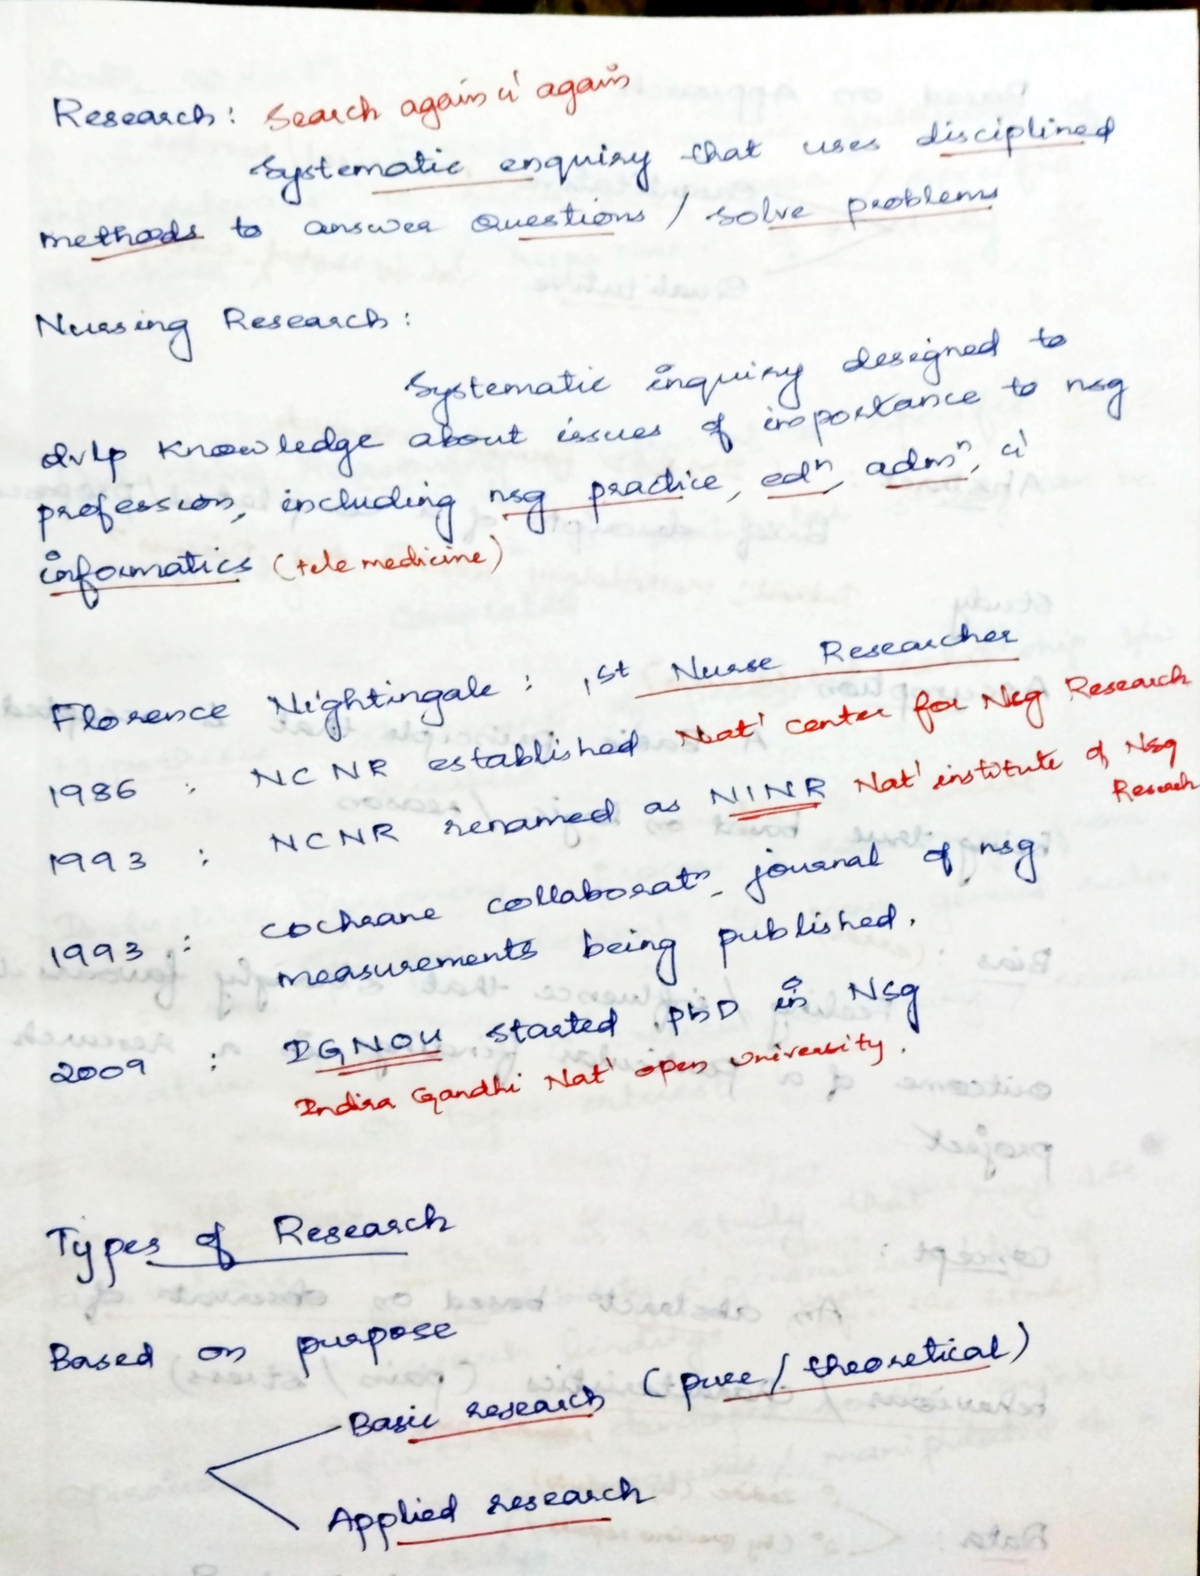 Research: Search again & again
Systematic enquiry that uses disciplined
methods to answer questions / solve problems
Nursing Research:
Systematic inquiry designed to
dvlp knowledge about issues of importance to nsg
profession, including nsg practice, edⁿ, admⁿ, &
informatics (tele medicine)
Florence Nightingale: 1st Nurse Researcher
1986 : NCNR established Nat' center for Nsg Research
1993 : NCNR renamed as NINR Nat' institute of Nsg
Research
1993 : cochrane collaboratⁿ, journal of nsg
measurements being published.
2009 : IGNOU started PhD in Nsg
Indira Gandhi Nat' open University.
Types of Research
Based on purpose
Basic research (pure / theoretical)
Applied research